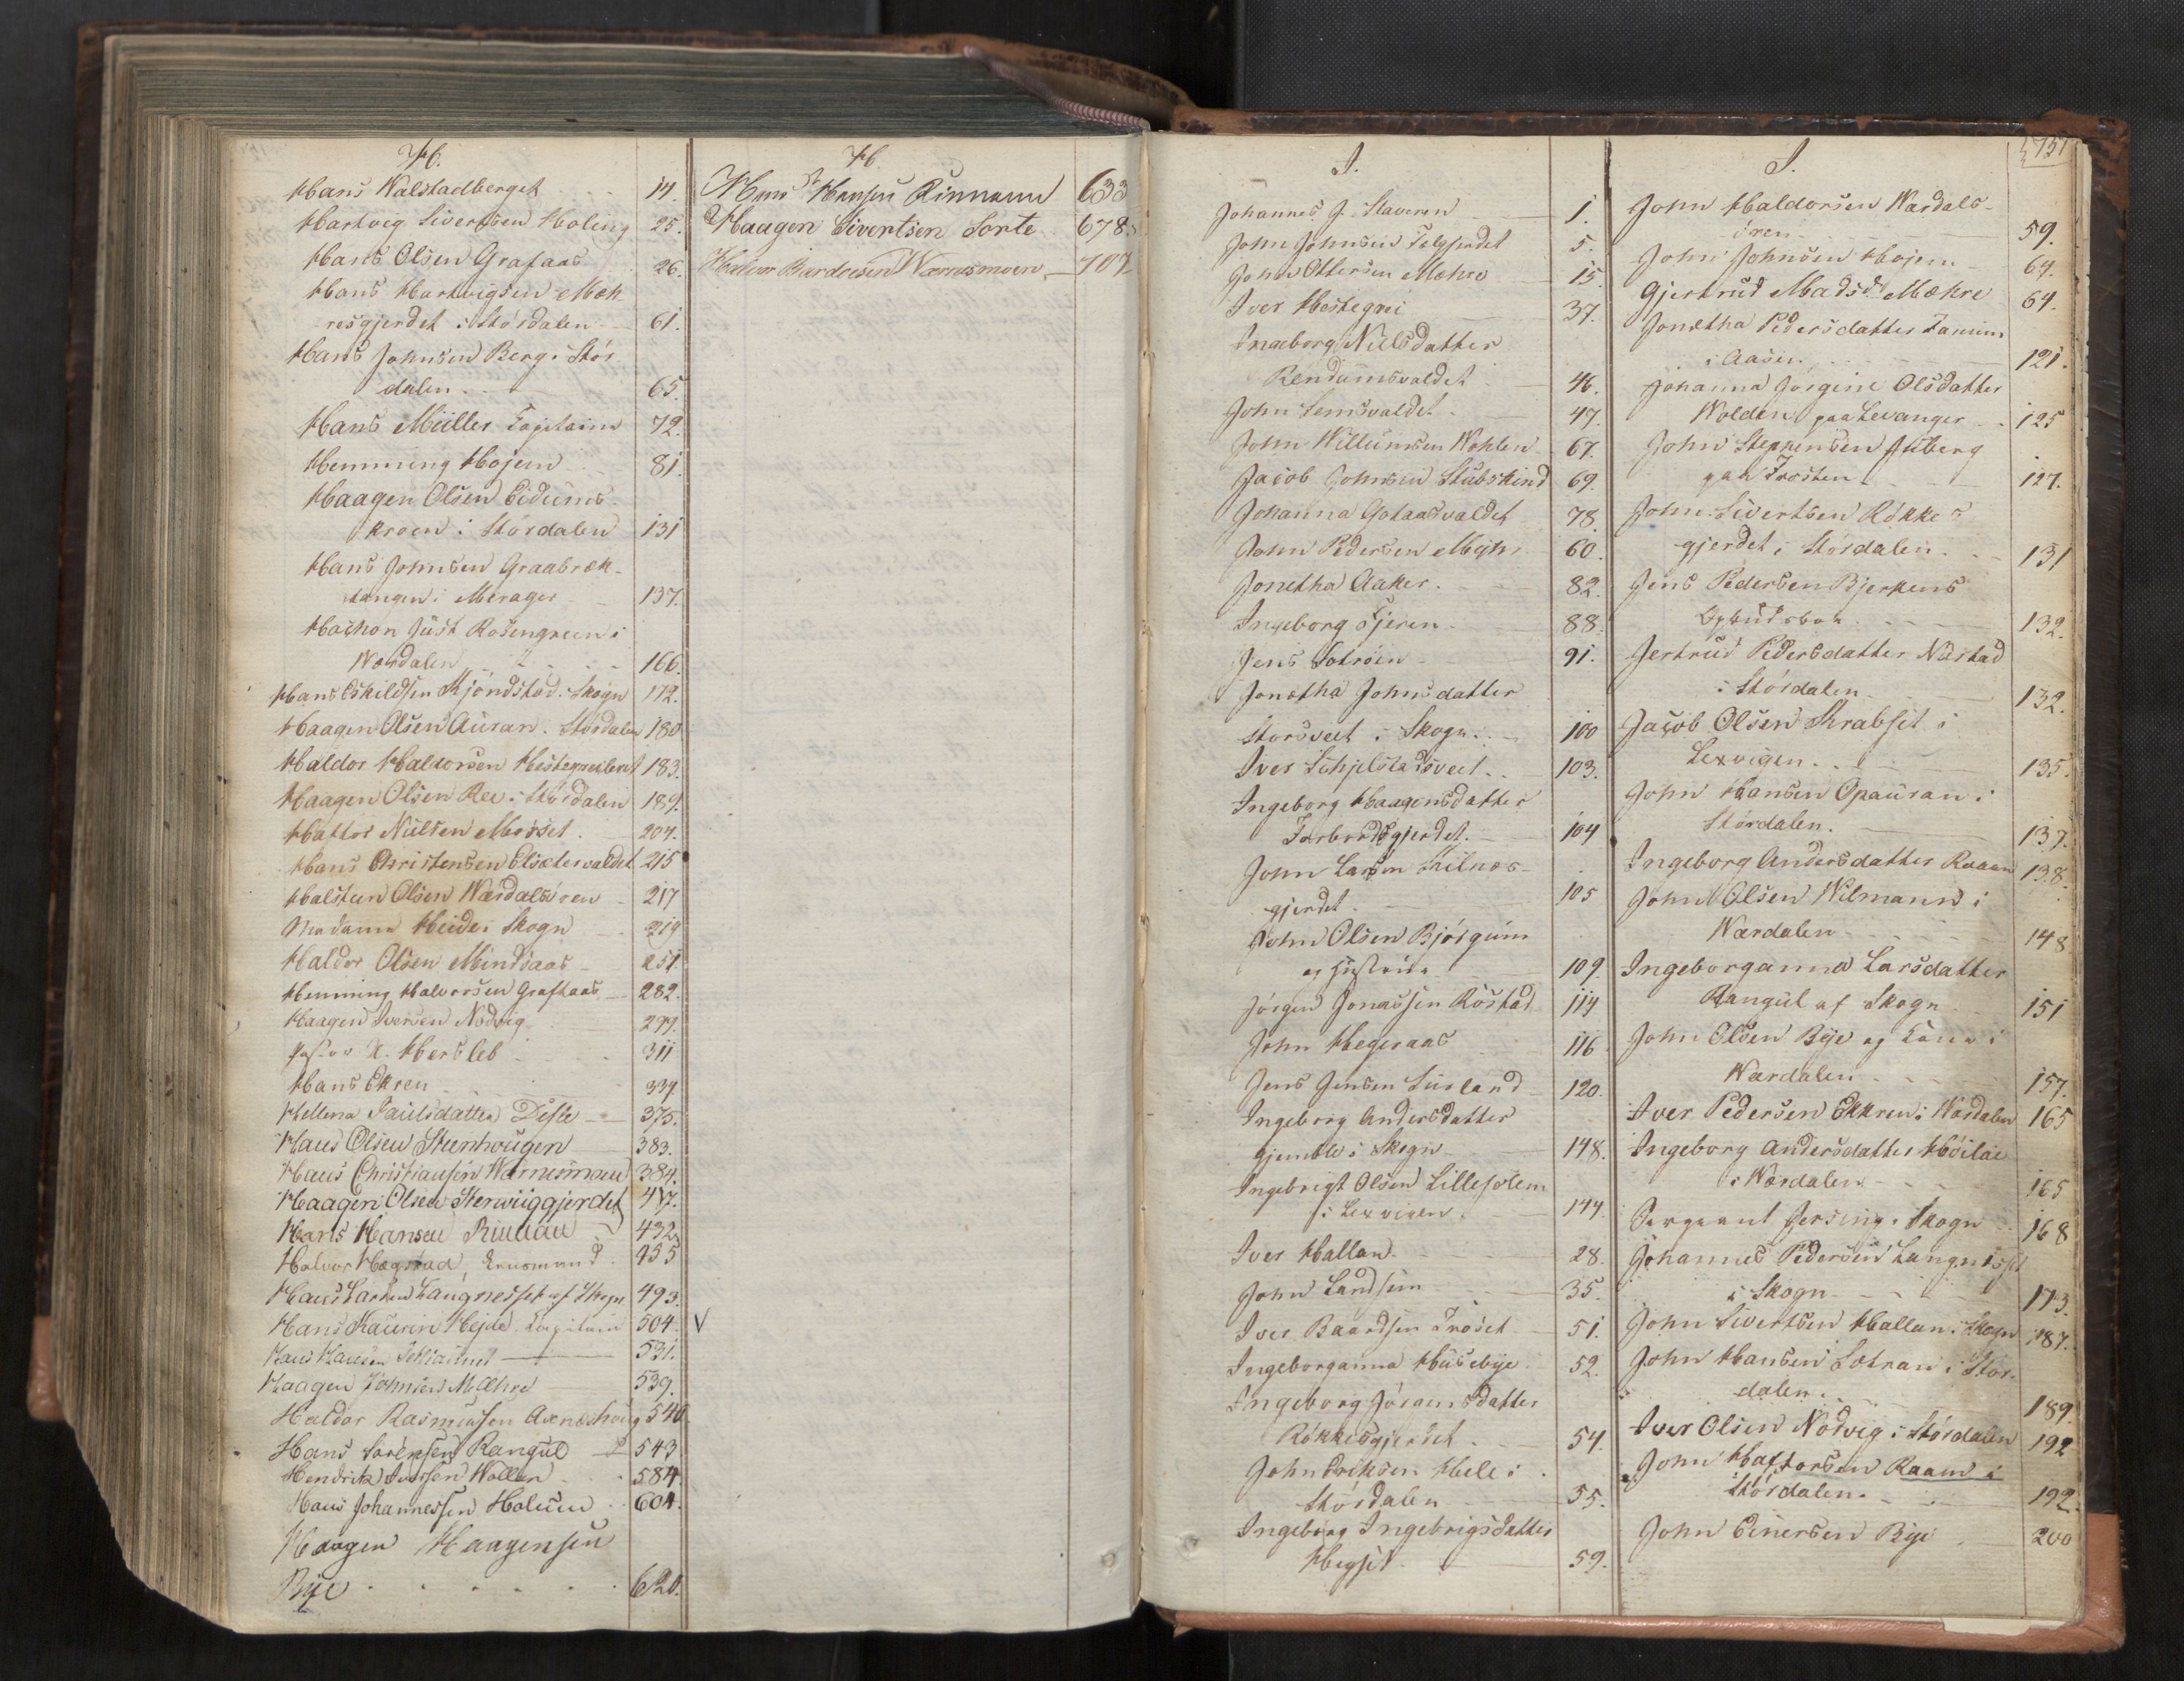 H.
Hans Walstadberget 14.
Hartvig Sivertsen Holing 25.
Hans Olsen Grafaas 26.
Hans Hartvigsen Mæh-
resgjerdet i Størdalen 61.
Hans Johnsen Berg i Stør
dalen 65.
Hans Müller Capitaine 72.
Hemming Hojem 81.
Haagen Olsen Eidums-
kroen i Størdalen 131
Hans Johnsen Graabræk-
tangen i Merager 137.
Hachon Just Rosengreen i
Wærdalen 166.
Hans Eskildsen Mjøndstad i Skogn 172.
Haagen Olsen Auran i Størdalen 180
Haldor Haldorsen 183.
Haagen Olsen Ree i Størdalen 189.
Haftor Nielsen Morset 204.
Hans Christensen Elsætervaldet 215
Halsteen Olsen Wærdalsøren 217
Madame Heide i Skogn 219
Haldor Olsen Mindsaas 251.
Henning Halvorsen Graftaas 282.
Haagen Iversen Nødvig 299.
Pastor H. Hersleb 311
Hans Ekren 334.
Hellena Paulsdatter 375.
Hans Olsen Steenhougen 383.
Hans Christiansen Wærnesmoen 384.
Haagen Olsen 417.
Hans Hansen Rinnan 432.
Halvor Hægstad, Lensmand 455
Hans Larsen Langnesset af Skogn 493.
Hans Kauren Hejde Capitain 504.
Hans Hansen 531.
Haagen Johnsen Mæhre 539.
Haldor Rasmussen 540.
Hans Sørensen Rangul 543
Hendrik Iversen Wollan 584.
Hans Johannesen Holum 604.
Haagen Haagensen
Bye 620.
H.
Hans Hansen Rinnan 633
Haagen Sivertsen Sorte 678.
Halvor Bardosen Wærnesmoen 707
V
I.
Johannes J. Staveren 1.
John Johnsen 5.
John Ottersen Mæhre 15.
Iver Hestegrei 37.
Ingeborg Nielsdatter
Rendumsvaldet 46.
John Lemsvaldet 47.
John Willumsen Wohlen 67.
Jacob Johnsen Stubskind 69.
Johanna Gotaasvaldet 78.
John Pedersen 60.
Jonetha Aaker 82.
Ingeborg 88.
Jens Sotrøen 91.
Jonetha Johnsdatter
Storsveet i Skogn 100
Iver Schjelstadsveet 103.
Ingeborg Haagensdatter
Forbordsgjerdet 104
John Larsen
gjerdet 105
John Olsen Bjørgum
og Hustrue 109.
Jørgen Jonassen Røstad 114
John Hegeraas 116
Jens Jensen 120.
Ingeborg Andersdatter
Gjemble i Skogn 148.
Ingebrigt Olsen Lillesolem
i Lexvigen 144.
Iver Hallan 28.
John Landsem 35.
Iver Baardsen Trøset 51.
Ingeborganna Husebye 52.
Ingeborg Jørgensdatter
Røkkesgjerdet 54.
John Eriksen Hele i
Størdalen 55.
Ingeborg Ingebrigtsdatter
Hegset 59.
I.
757
John Haldorsen Wærdals-
øren 59.
John Johnsen Hojem 64.
Gjertrud Madsd. Mæhre 64.
Jonetha Pedersdatter Fanum
i Aasen 121.
Johanna Jørgine Olsdatter
Wolden paa Levanger 125
John Steffensen
paa Frosten 127.
John Sivertsen Røkkes
gjerdet i Størdalen 131
Jens Pedersen Bjerkens
Opbudsboe 132.
Jertrud Pedersdatter Nustad
i Størdalen 132.
Jacob Olsen Skrabset i
Lexvigen 135.
John Hansen Opauran i
Størdalen 137.
Ingeborg Andersdatter Raaan 138.
John Olsen Wilmann i
Wærdalen 148
Ingeborganna Larsdatter
Rangul af Skogn 151
John Olsen Bye og Kone i
Wærdalen 157.
Iver Pedersen Ekkren i Wærdalen 165
Ingeborg Andersdatter Høilie
i Wærdalen 165
Sergeant Jersing i Skogn 168
Johannes Pedersen Langnesset
i Skogn 173.
John Sivertsen Hallan i Skogn 187.
John Hansen Lotran i Stør-
dalen 189.
Iver Olsen Nødvig i Størdalen 192
John Haftorsen Raaen i
Størdalen 192.
John Einersen Bye 200